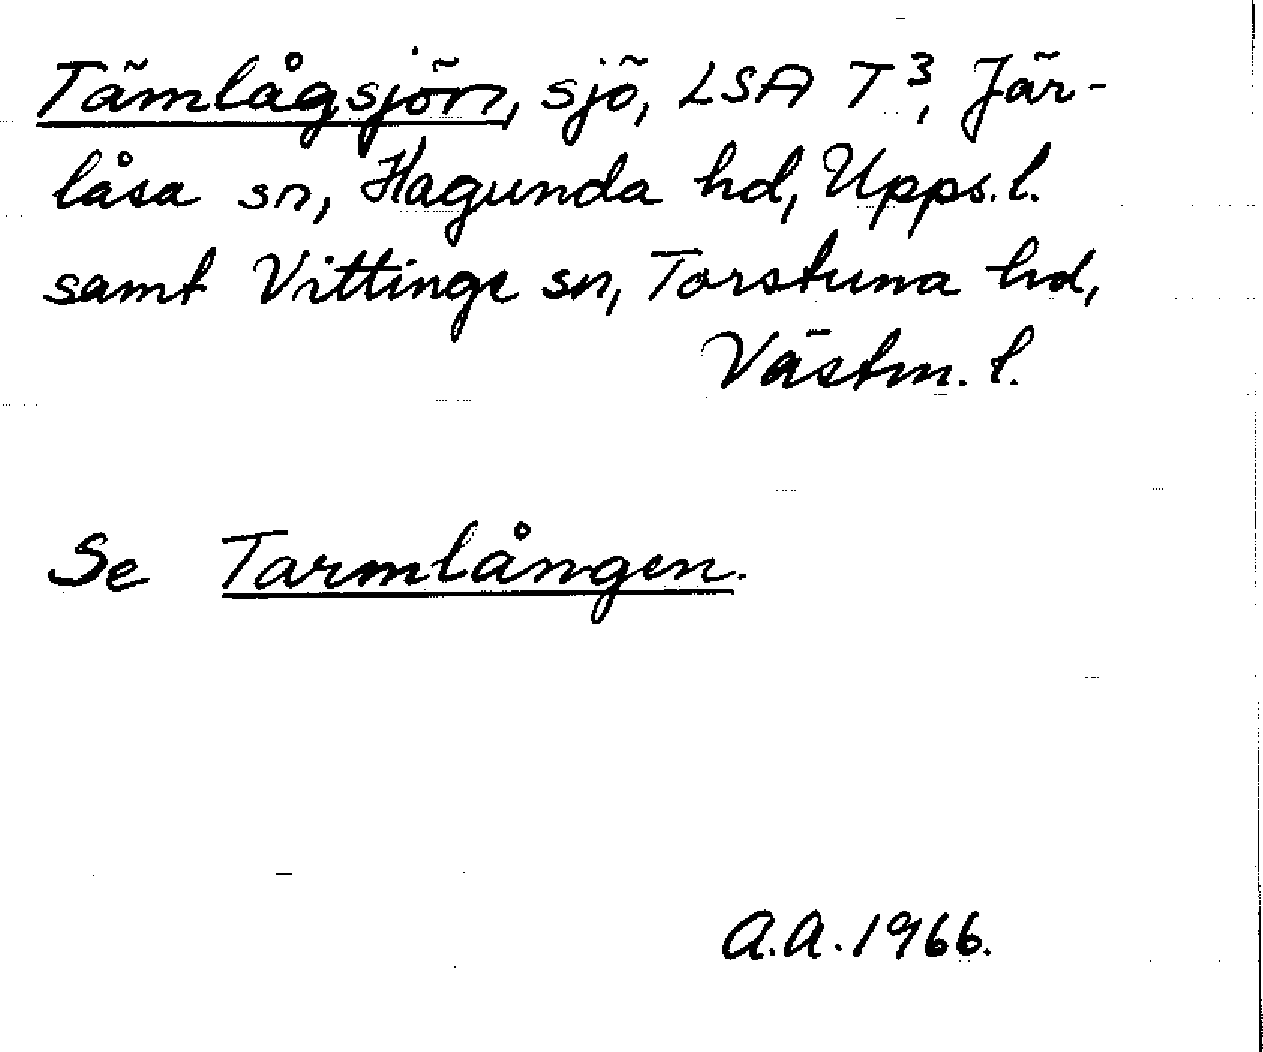 Tämlågsjön, sjö, LSA T³, Jär-
låsa sn, Hagunda hd, Upps. l.
samt Vittinge sn, Torstuna hd,
Västm. l.
Se Tarmlången.
A.A. 1966.